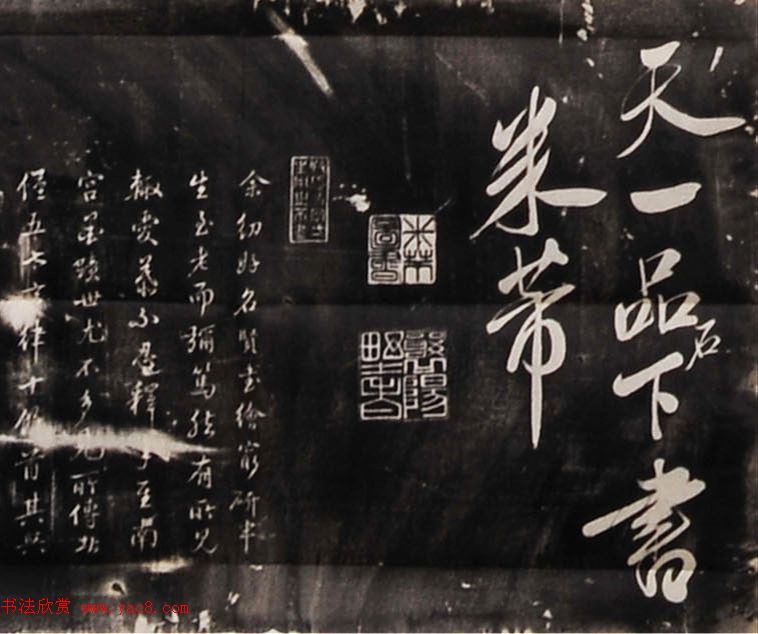 天一品石下書
米芾
米芾
襄陽
余幼好名賢書繪窮研半
生至老而彌篤然有所見
輒愛慕不盡釋手至南
宮墨蹟世尤不多見所傳北
僅五七言律十餘首其與
书法欣赏 www.yac8.com